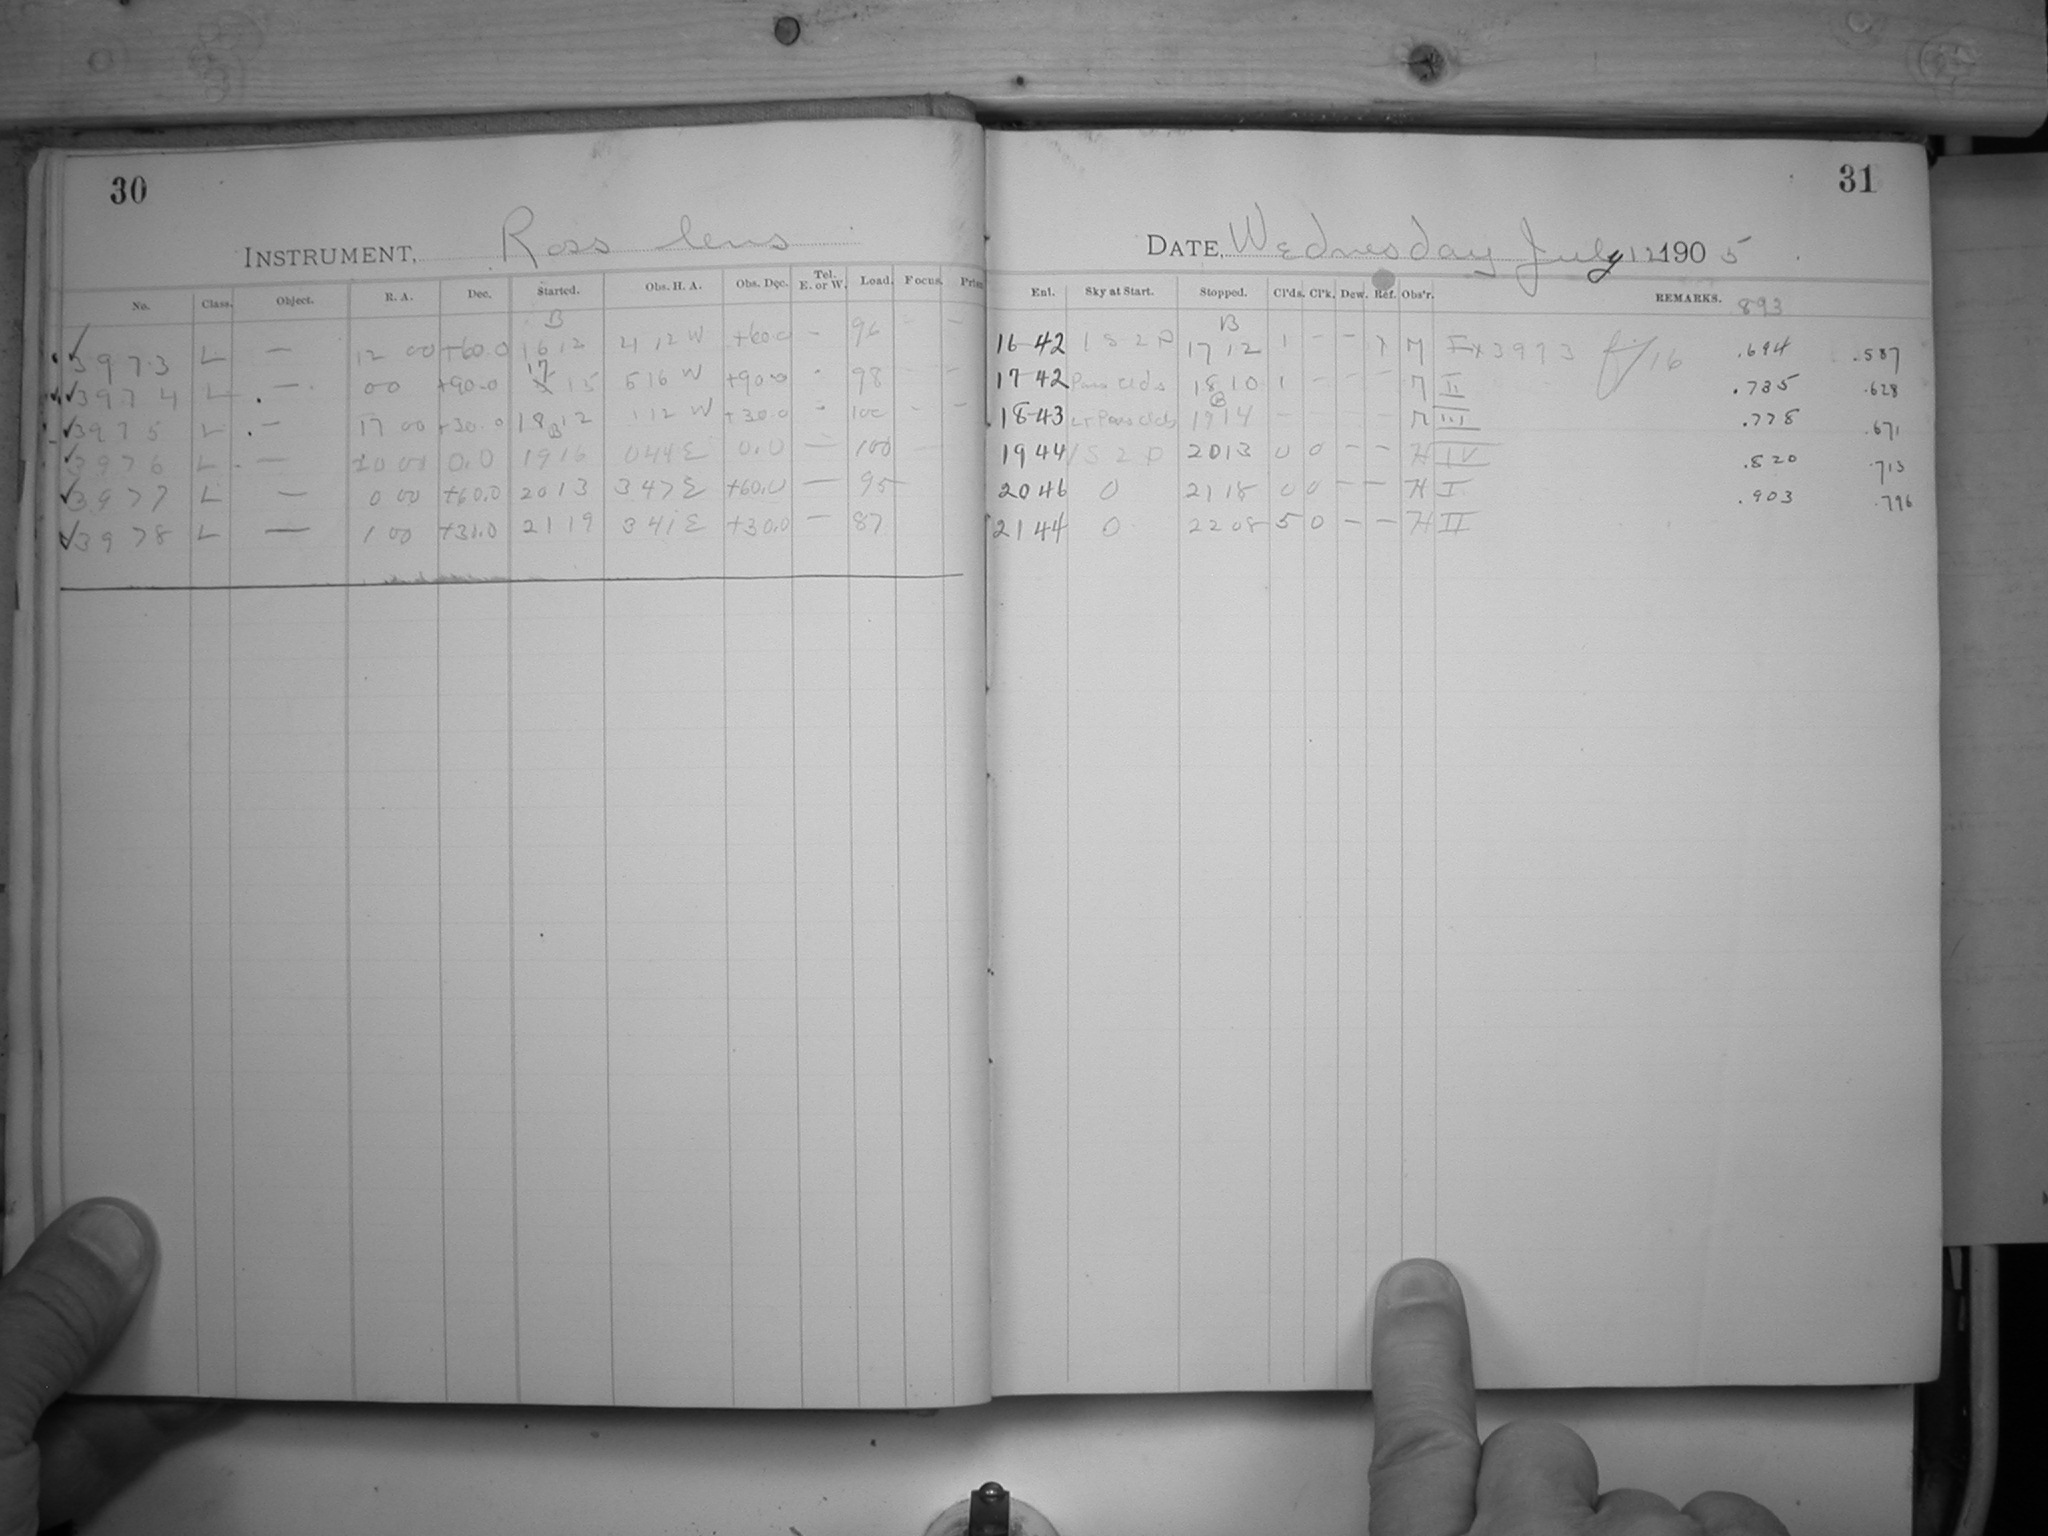 30
INSTRUMENT, Ross lens
No. Class. Object. R. A. Dec. Started. Obs. H. A. Obs. Dec. Tel. E. or W. Load. Focus.
B
✓ 3973 L — 12 00 +60.0 16 12 4 12 W +60.0 - 96 - -
17
✓ 3974 L — 00 +90.0 15 5 16 W +90.0 - 98
✓ 3975 L — 17 00 +30.0 18 12 1 12 W +30.0 - 100 - -
B
✓ 3976 L — 20 00 0.0 19 16 0 44 E 0.0 — 100 —
✓ 3977 L — 0 00 +60.0 20 13 3 47 E +60.0 — 95 —
✓ 3978 L — 1 00 +30.0 21 19 3 41 E +30.0 — 87
31
DATE, Wednesday July 12 1905
Ent. Sky at Start. Stopped. Cl'ds. Cl'k. Dew. Ref. Obs'r. REMARKS. 893
B
16 42 1 S 2 P 17 12 1 - - M Ex 3973 f/16 .694 .587
17 42 Pass Clds 18 10 1 - - - M II .735 .628
B
18 43 Lt Pass Clds 19 14 - - - M III .778 .671
19 44 1 S 2 P 20 13 0 0 - - H IV .820 .713
20 46 0 21 18 0 0 - - H I .903 .796
21 44 0 22 08 5 0 - - H II